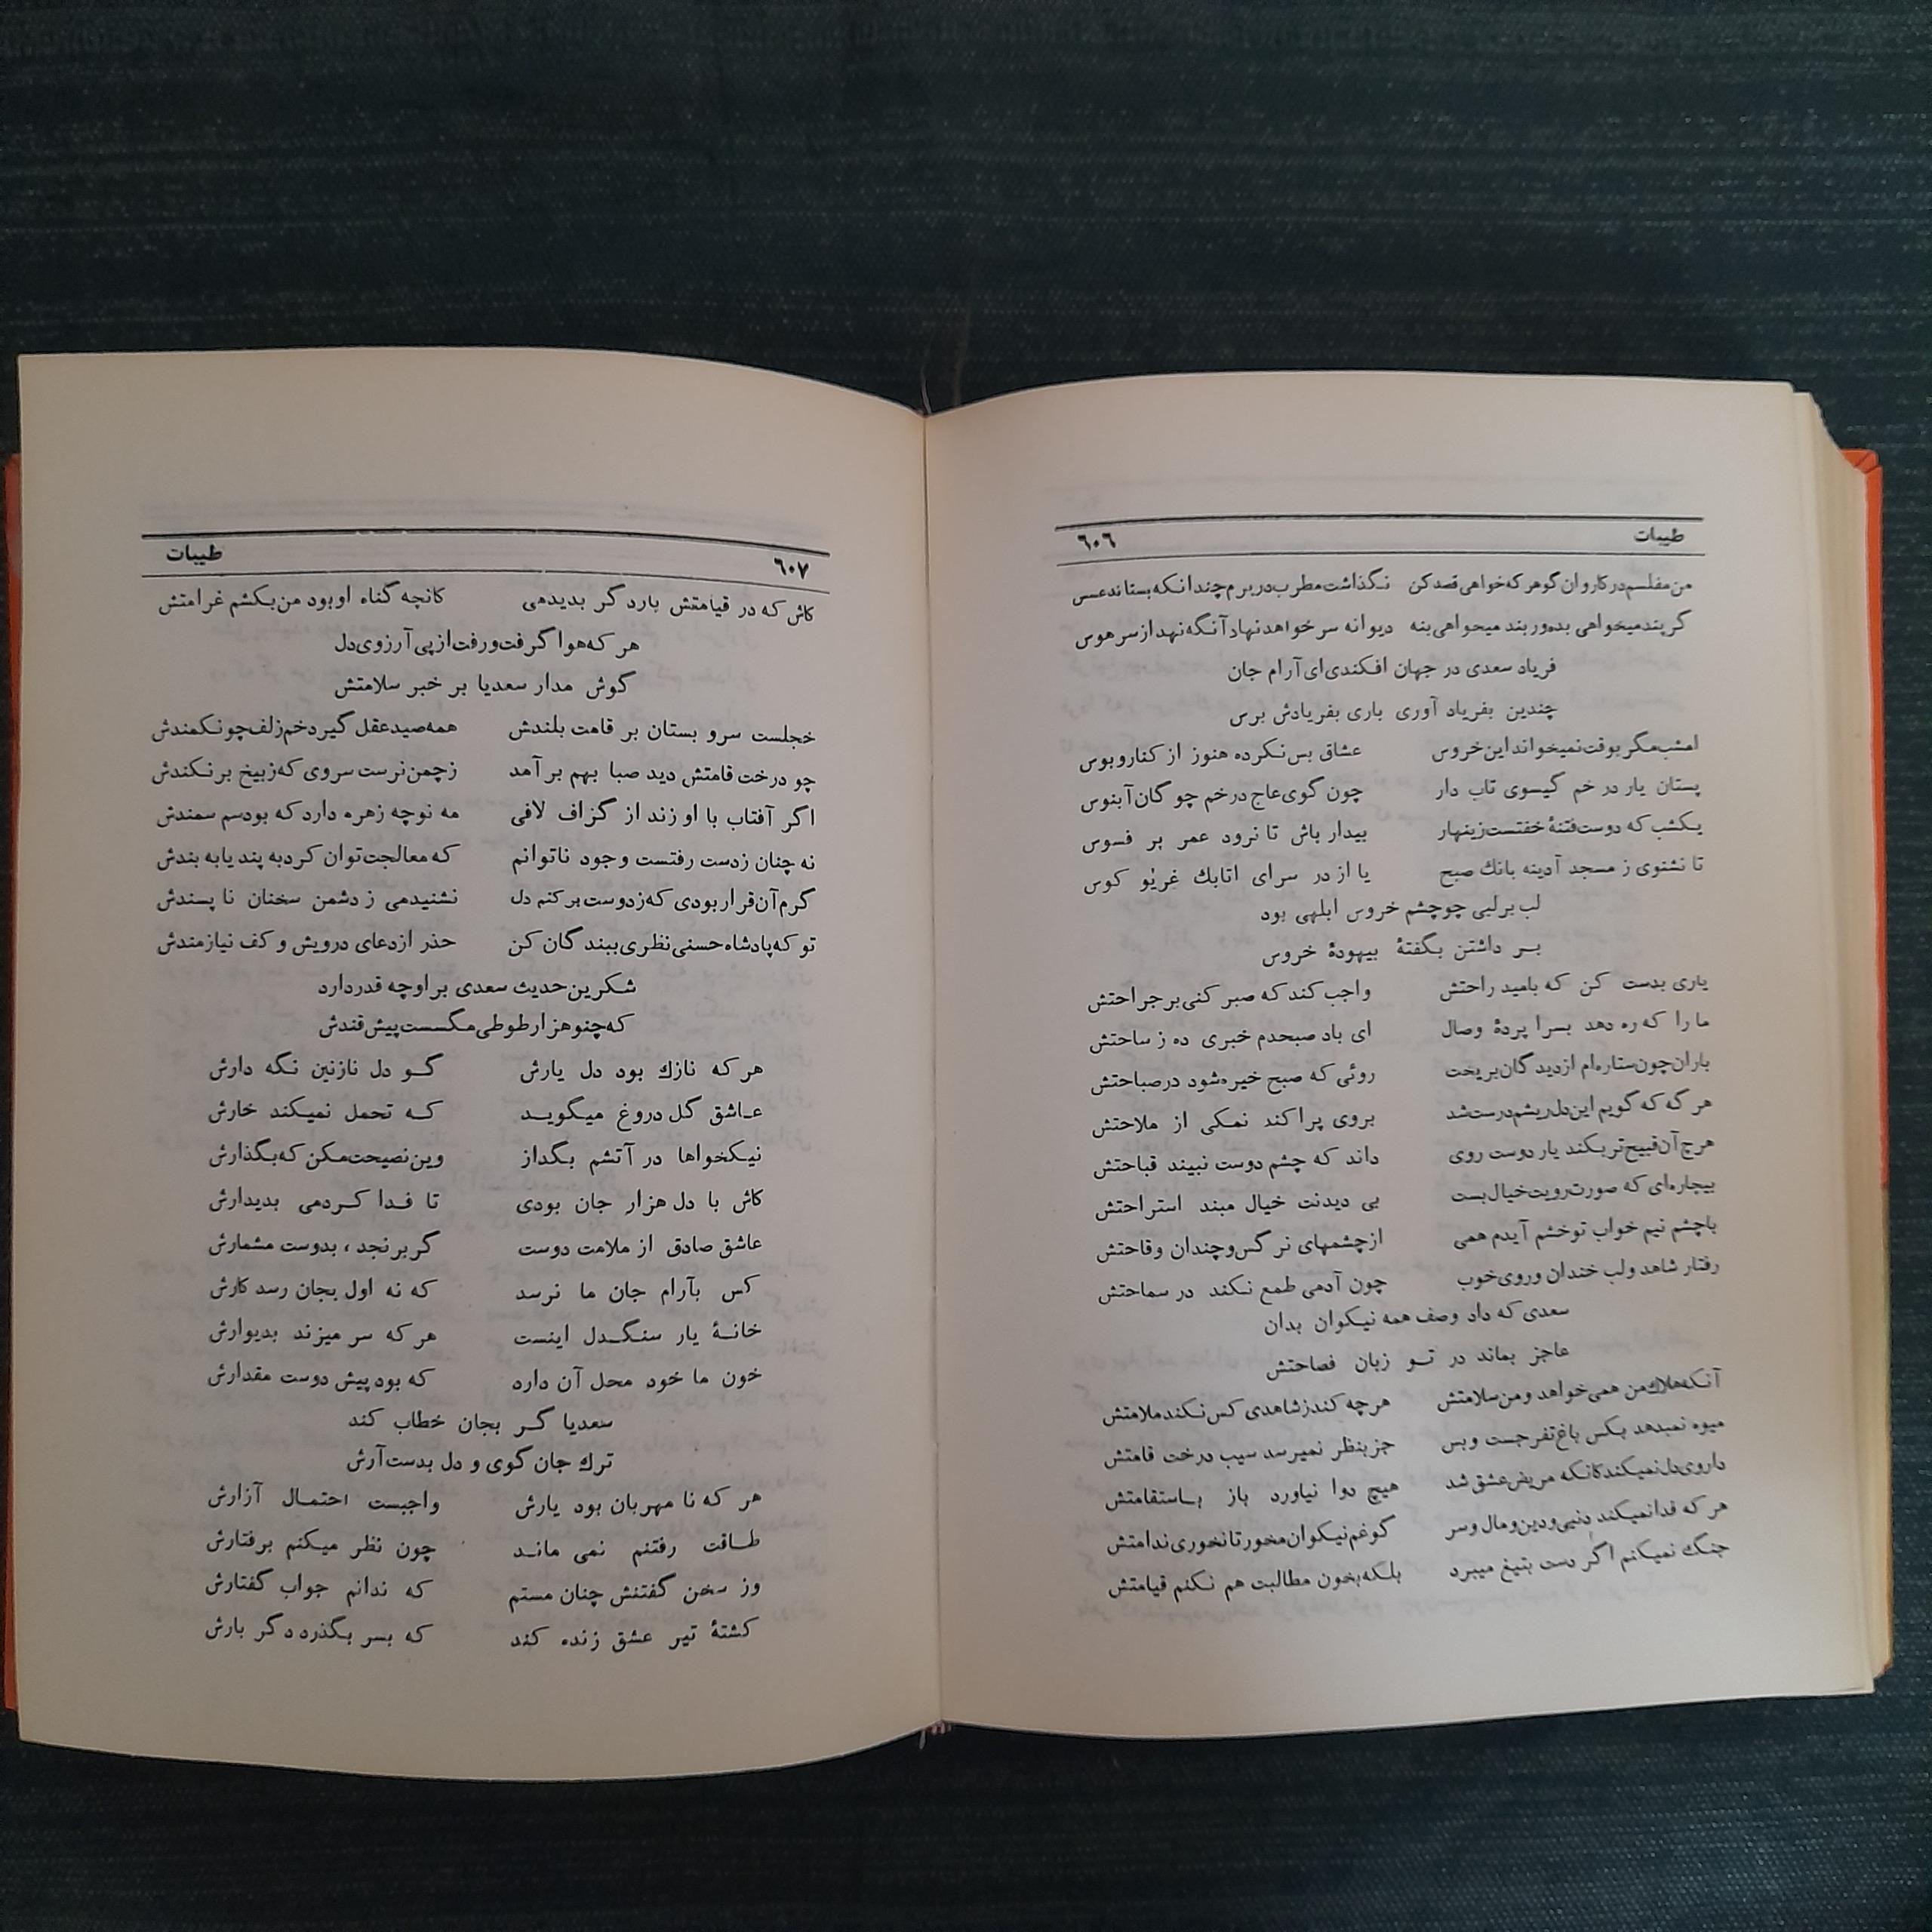 طیبات ٦٠٦
من مفلسم در کاروان گو هر که خواهی قصد کن نگذاشت مطرب در برم چندانکه بستاند عسس
گر پند میخواهی بده ور بند میخواهی بنه دیوانه سر خواهد نهاد آنگه نهد از سر هوس
فریاد سعدی در جهان افکندی ای آرام جان
چندین بفریاد آوری باری بفریادش برس
امشب مگر بوقت نمیخواند این خروس عشاق بس نکرده هنوز از کنار و بوس
پستان یار در خم گیسوی تاب دار چون گوی عاج در خم چوگان آبنوس
یکشب که دوست فتنهٔ خفتست زینهار بیدار باش تا نرود عمر بر فسوس
تا نشنوی ز مسجد آدینه بانك صبح یا از در سرای اتابك غریو کوس
لب بر لبی چو چشم خروس ابلهی بود
بر داشتن بگفتهٔ بیهودهٔ خروس
یاری بدست کن که بامید راحتش واجب کند که صبر کنی بر جراحتش
ما را که ره دهد بسرا پردهٔ وصال ای باد صبحدم خبری ده ز ساحتش
باران چون ستاره‌ام از دیدگان بریخت روئی که صبح خیره شود در صباحتش
هر گه که گویم این دل ریشم درست شد بروی پراکند نمکی از ملاحتش
هرچ آن قبیح‌تر بکند یار دوست روی داند که چشم دوست نبیند قباحتش
بیچاره‌ای که صورت رویت خیال بست بی دیدنت خیال مبند استراحتش
باچشم نیم خواب تو خشم آیدم همی از چشمهای نرگس و چندان وقاحتش
رفتار شاهد و لب خندان و روی خوب چون آدمی طمع نکند در سماحتش
سعدی که داد وصف همه نیکوان بدان
عاجز بماند در تو زبان فصاحتش
آنکه هلاك من همی خواهد و من سلامتش هرچه کند ز شاهدی کس نکند ملامتش
میوه نمیدهد بکس باغ تفرجست و بس جز بنظر نمیرسد سیب درخت قامتش
داروی دل نمیکند کانکه مریض عشق شد هیچ دوا نیاورد باز باستقامتش
هر که فدا نمیکند دنیی و دین و مال و سر گو غم نیکوان مخور تا نخوری ندامتش
جنگ نمیکنم اگر دست بتیغ میبرد بلکه بخون مطالبت هم نکنم قیامتش
٦٠٧ طیبات
کاش که در قیامتش بارد گر بدیدمی کانچه گناه او بود من بکشم غرامتش
هر که هوا گرفت و رفت از پی آرزوی دل
گوش مدار سعدیا بر خبر سلامتش
خجلست سرو بستان بر قامت بلندش همه صید عقل گیرد خم زلف چون کمندش
چو درخت قامتش دید صبا بهم بر آمد ز چمن نرست سروی که ز بیخ بر نکندش
اگر آفتاب با او زند از گزاف لافی مه نو چه زهره دارد که بود سم سمندش
نه چنان ز دست رفتست وجود ناتوانم که معالجت توان کرد به پند یا به بندش
گرم آن قرار بودی که ز دوست بر کنم دل نشنیدمی ز دشمن سخنان نا پسندش
تو که پادشاه حسنی نظری ببندگان کن حذر از دعای درویش و کف نیازمندش
شکرین حدیث سعدی بر او چه قدر دارد
که چنو هزار طوطی مگسست پیش قندش
هر که نازك بود دل یارش گو دل نازنین نگه دارش
عاشق گل دروغ میگوید که تحمل نمیکند خارش
نیکخواها در آتشم بگداز وین نصیحت مکن که بگذارش
کاش با دل هزار جان بودی تا فدا کردمی بدیدارش
عاشق صادق از ملامت دوست گر برنجد ، بدوست مشمارش
کس بآرام جان ما نرسد که نه اول بجان رسد کارش
خانهٔ یار سنگدل اینست هر که سر میزند بدیوارش
خون ما خود محل آن دارد که بود پیش دوست مقدارش
سعدیا گر بجان خطاب کند
ترك جان گوی و دل بدست آرش
هر که نا مهربان بود یارش واجبست احتمال آزارش
طاقت رفتنم نمی ماند چون نظر میکنم برفتارش
وز سخن گفتنش چنان مستم که ندانم جواب گفتارش
کشتهٔ تیر عشق زنده کند که بسر بگذرد دگر بارش